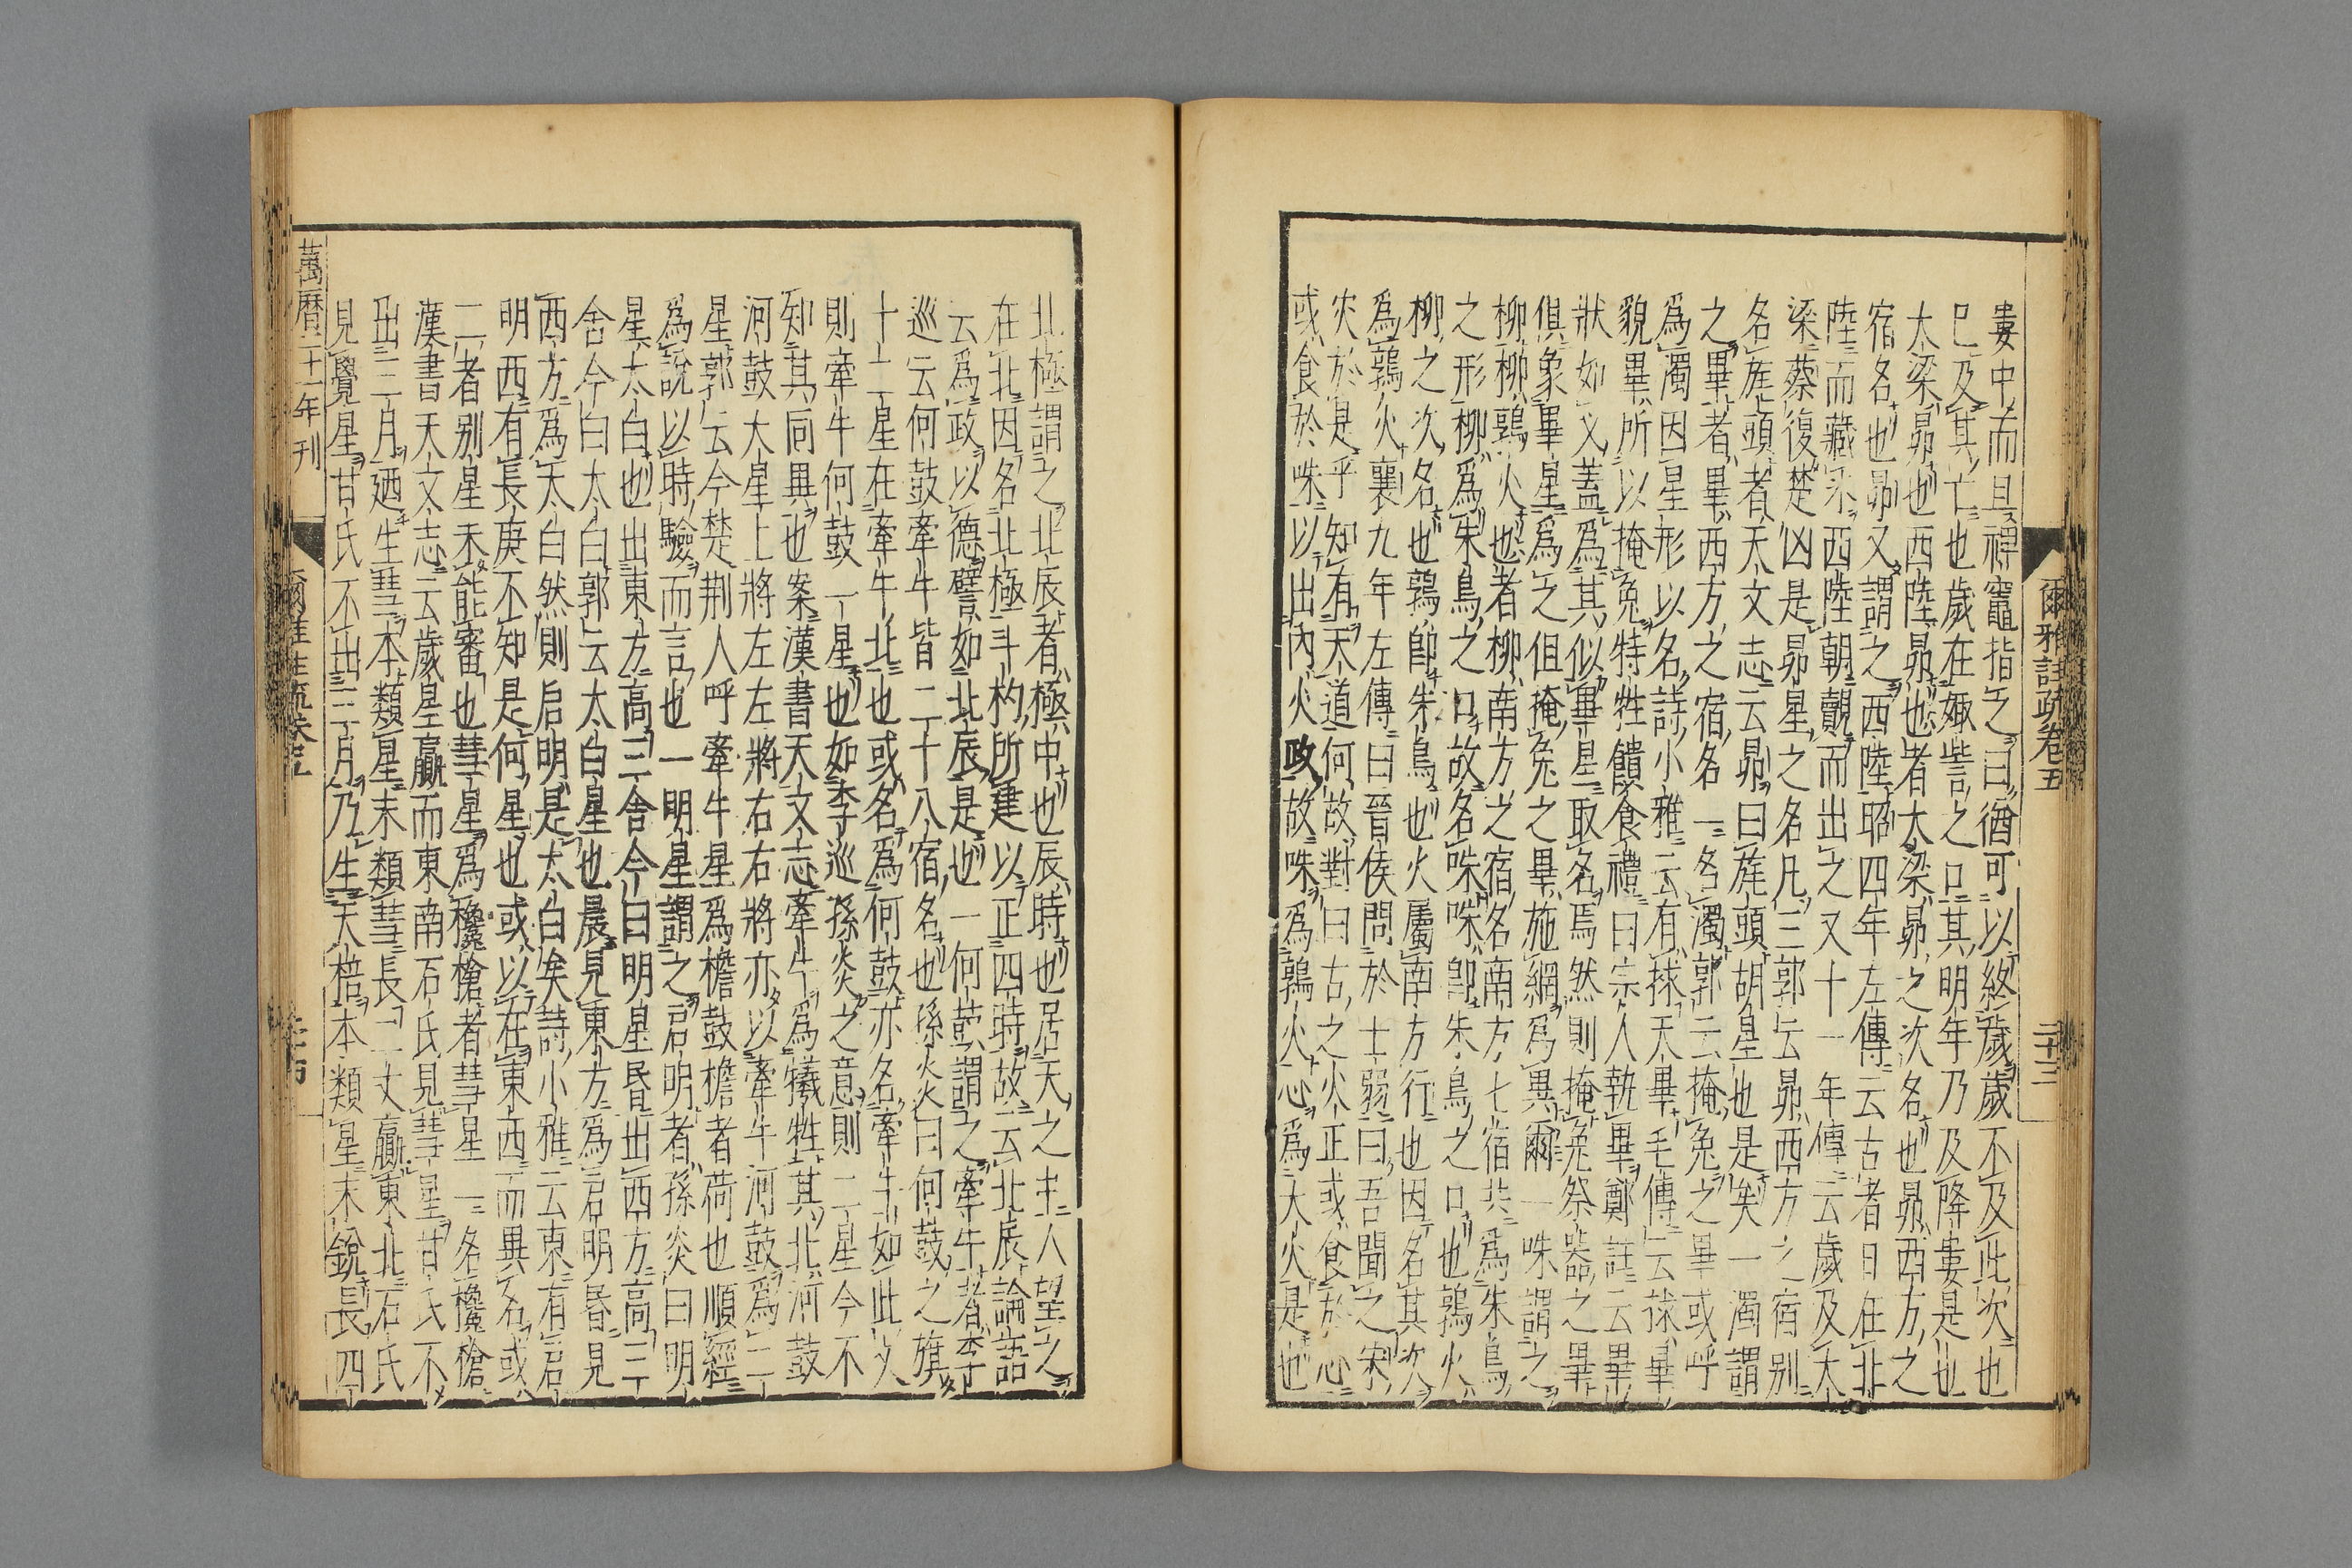 婁中而旦禆竈指之曰猶可以終歲歲不及此次也
巳及其亡也歲在娵訾之口其明年乃及降婁是也
大梁昴也西陸昴也者大梁昴之次名也昴西方之
宿名也昴又謂之西陸昭四年左傳云古者日在北
陸而藏冰西陸朝覿而出之又十一年傳云歲及大
梁蔡復楚凶是昴星之名凡三郭云昴西方之宿别
名旄頭者天文志云昴曰旄頭胡星也是矣一濁謂
之畢者畢西方之宿名一名濁郭云掩兔之畢或呼
爲濁因星形以名詩小雅云有捄天畢毛傳云捄畢
貌畢所以掩兔特牲饋食禮曰宗人執畢鄭註云畢
狀如叉蓋爲其似畢星取名焉然則掩兔祭器之畢
俱象畢星爲之但掩兔之畢施網爲異爾一咮謂之
柳柳鶉火也者柳南方之宿名南方七宿共爲朱鳥
之形柳爲朱鳥之口故名咮咮即朱鳥之口也鶉火
柳之次名也鶉即朱鳥也火屬南方行也因名其次
爲鶉火襄九年左傳曰晉侯問於士弱曰吾聞之宋
灾於是乎知有天道何故對曰古之火正或食於心
或食於咮以出内火政故咮爲鶉火心爲大火是也
爾雅註疏卷五
二十三
北極謂之北辰者極中也辰時也居天之中人望之
在北因名北極斗杓所建以正四時故云北辰論語
云爲政以德譬如北辰是也一何鼓謂之牽牛者李
巡云何鼓牽牛皆二十八宿名也孫炎曰何鼓之旗
十二星在牽牛北也或名爲何鼓亦名牽牛如此文
則牽牛何鼓一星也如李巡孫炎之意則二星今不
知其同異也案漢書天文志牽牛爲犧牲其北河鼓
河鼓大星上將左左將右右將亦以牽牛河鼓爲二
星郭云今楚荆人呼牽牛星爲檐鼓檐者荷也順經
爲說以時驗而言也一明星謂之启明者孫炎曰明
星太白也出東方高三舍今曰明星昏出西方高三
舍今曰太白郭云太白星也晨見東方爲启明昏見
西方爲太白然則启明是太白矣詩小雅云東有启
明西有長庚不知是何星也或以在東西而異名或
二者别星未能審也彗星爲欃槍者彗星一名欃槍
漢書天文志云歲星贏而東南石氏見彗星甘氏不
出三月廼生彗本類星末類彗長二丈贏東北石氏
見覺星甘氏不出三月乃生天棓本類星末銳長四
萬曆二十一年刊